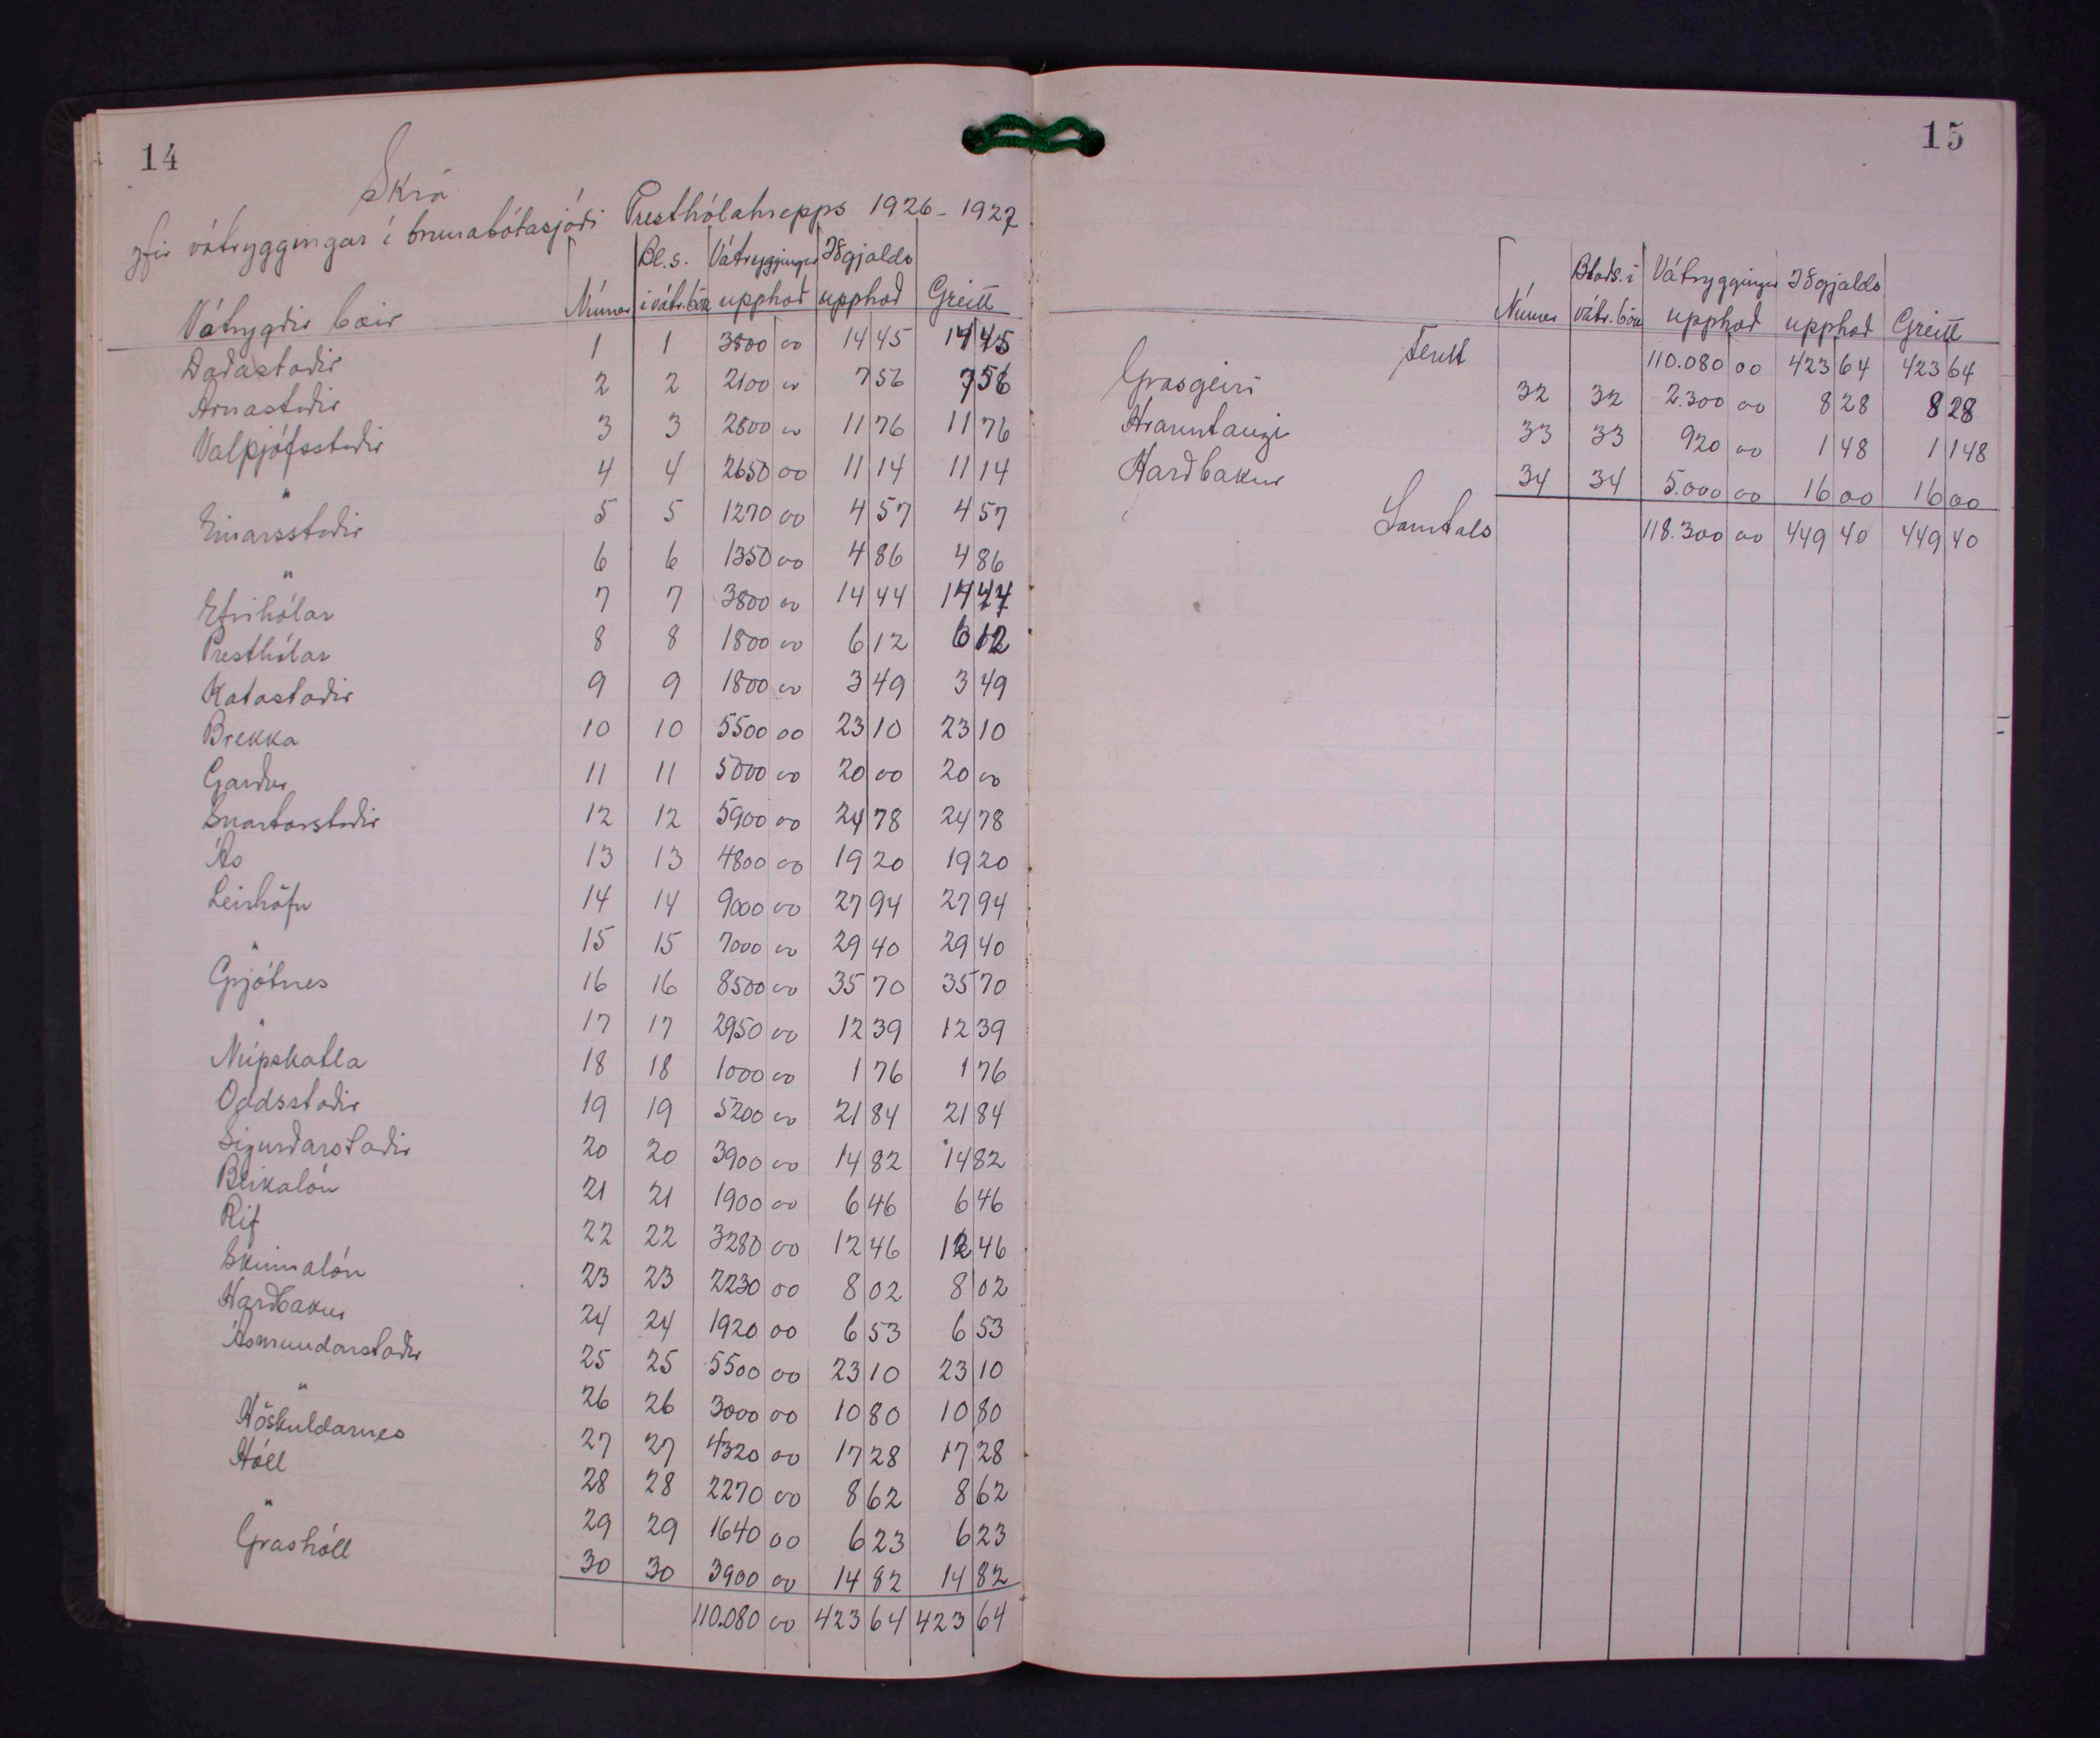 14
Skrá
yfir vátryggingar í brunabótasjóði Presthólahrepps 1926-1927
Vátrygðir bæir Númer Bl.s. í vátr.bók Vátryggingar upphæð Iðgjalds upphæð Greitt
Daðastaðir 1 1 3800 00 14 45 14 45
Arnastaðir 2 2 2100 00 7 56 7 56
Valþjófsstaðir 3 3 2800 00 11 76 11 76
" 4 4 2650 00 11 14 11 14
Einarsstaðir 5 5 1270 00 4 57 4 57
" 6 6 1350 00 4 86 4 86
Efrihólar 7 7 3800 00 14 44 14 44
Presthólar 8 8 1800 00 6 12 6 12
Katastaðir 9 9 1800 00 3 49 3 49
Brekka 10 10 5500 00 23 10 23 10
Garður 11 11 5000 00 20 00 20 00
Snartarstaðir 12 12 5900 00 24 78 24 78
Ás 13 13 4800 00 19 20 19 20
Leirhöfn 14 14 9000 00 27 94 27 94
" 15 15 7000 00 29 40 29 40
Grjótnes 16 16 8500 00 35 70 35 70
" 17 17 2950 00 12 39 12 39
Núpskatla 18 18 1000 00 1 76 1 76
Oddsstaðir 19 19 5200 00 21 84 21 84
Sigurðarstaðir 20 20 3900 00 14 82 14 82
Blikalón 21 21 1900 00 6 46 6 46
Rif 22 22 3280 00 12 46 12 46
Skinnalón 23 23 2230 00 8 02 8 02
Harðbakur 24 24 1920 00 6 53 6 53
Ásmundarstaðir 25 25 5500 00 23 10 23 10
" 26 26 3000 00 10 80 10 80
Höskuldarnes 27 27 4320 00 17 28 17 28
Hóll 28 28 2270 00 8 62 8 62
" 29 29 1640 00 6 23 6 23
Grashóll 30 30 3900 00 14 82 14 82
110.080 00 423 64 423 64
15
Númer Blads. í vátr. bók Vátryggingar upphæð Iðgjalds upphæð Greitt
Flutt 110.080 00 423 64 423 64
Grasgeiri 32 32 2.300 00 8 28 8 28
Hrauntangi 33 33 920 00 1 48 1 148
Harðbakur 34 34 5.000 00 16 00 16 00
Samtals 118.300 00 449 40 449 40